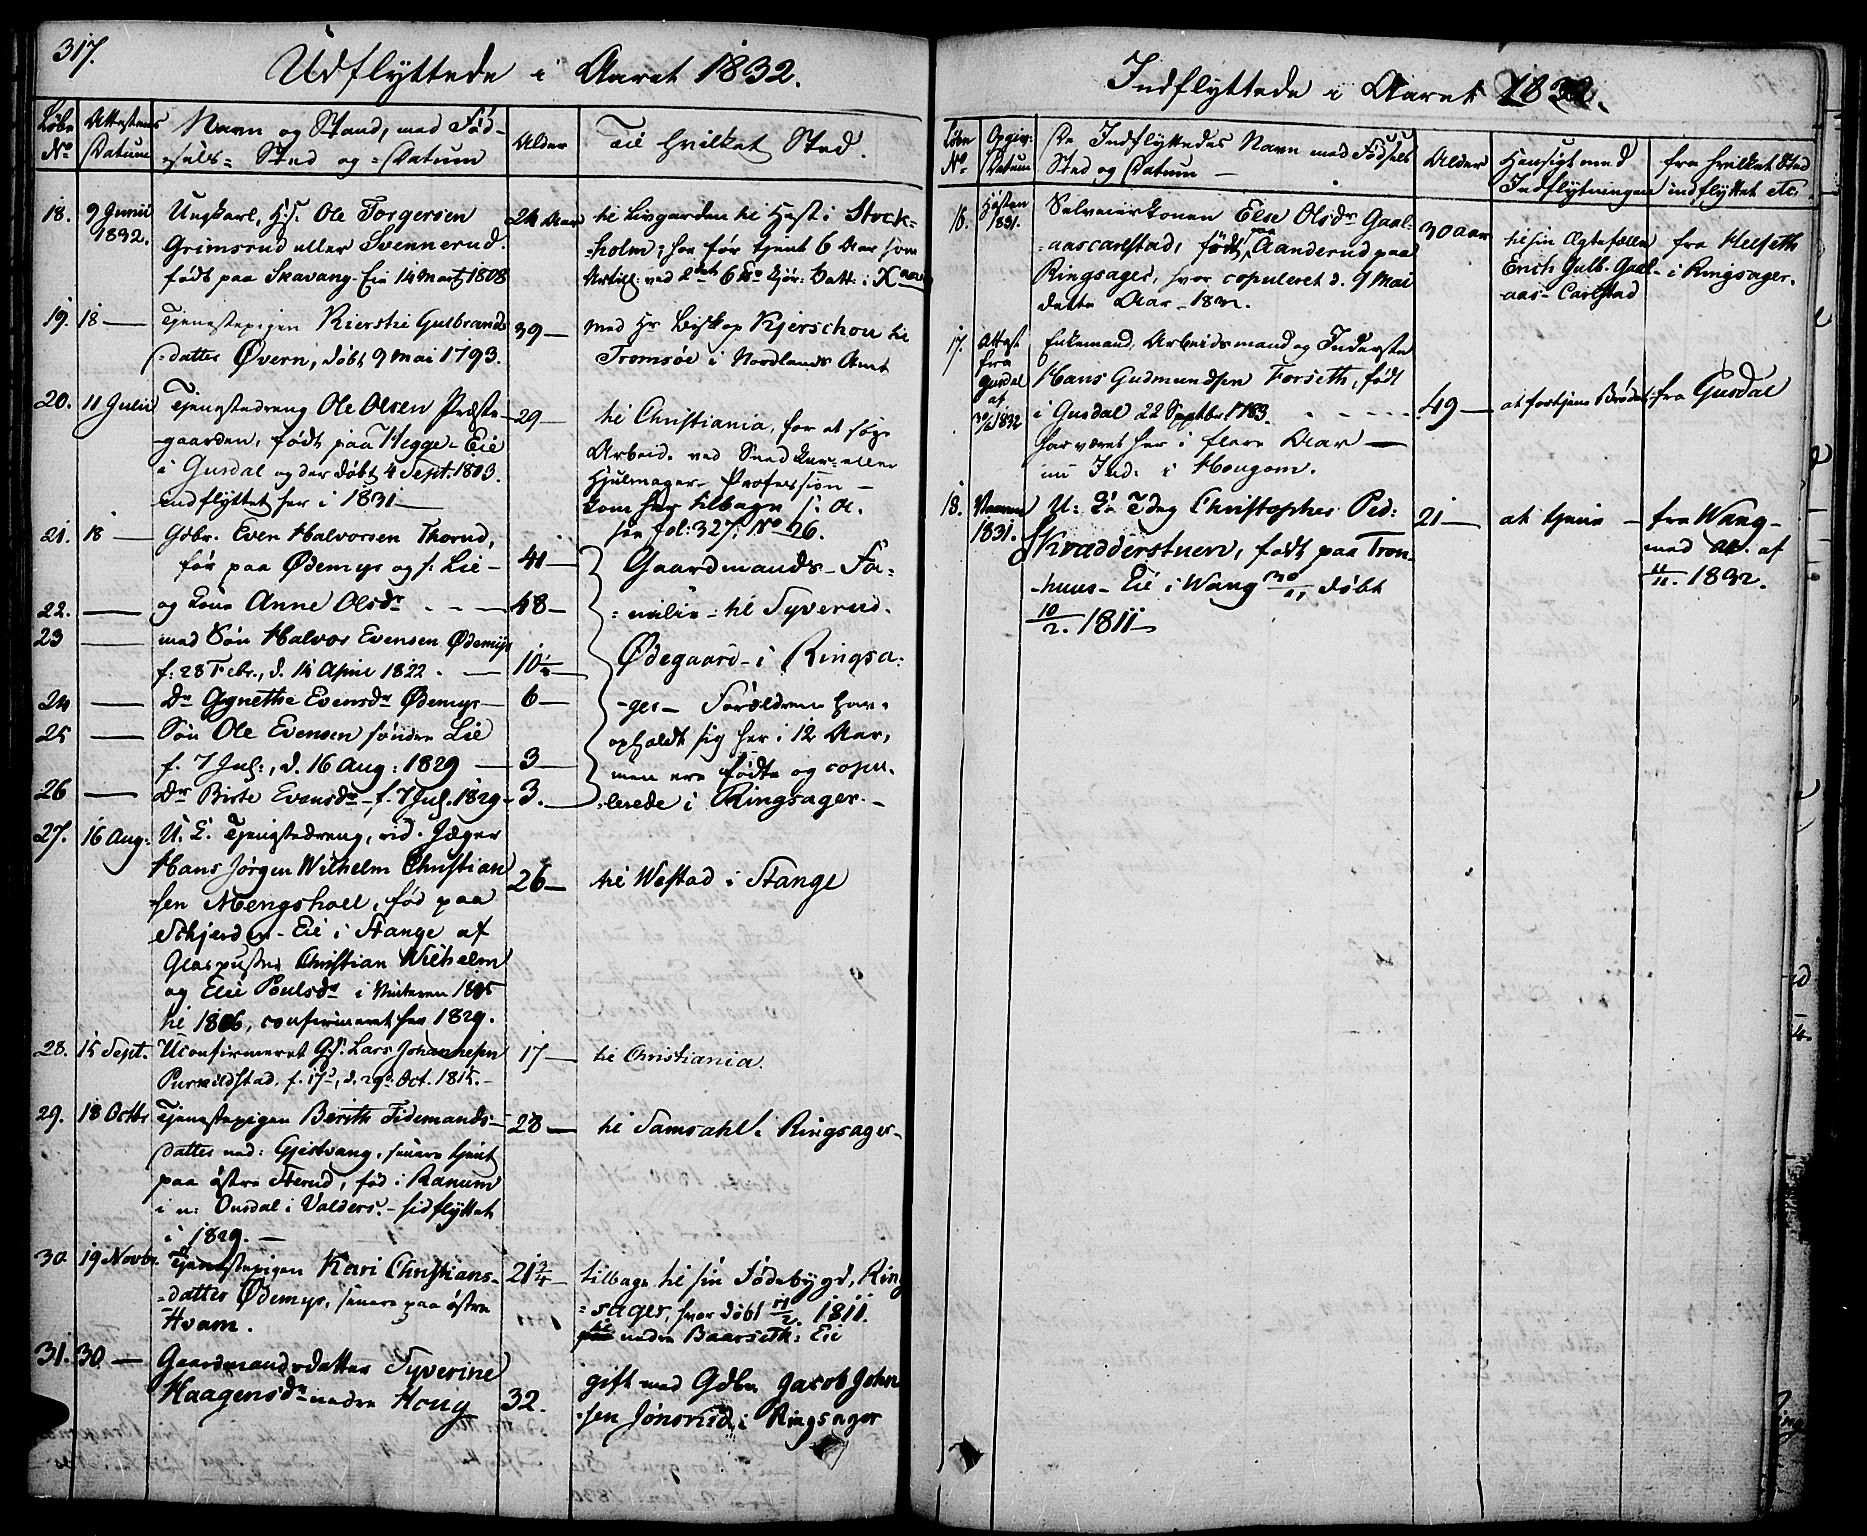 317.
Udflyttede i Aaret 1832.
Løbe No
Attestens Datum
Navn og Stand, med Fød-
-sels- Sted og -Datum
Alder
Til hvilket Sted.
18. 9 Junii 1832.
Ungkarl, Ole Torgersen
Grimsrud eller Svennerud.
født paa Skavang-Eie 14 Marts 1808
24 Aar
til Livgarden til Hest i Stock-
-holm; har før tjent 6 Aar som
19. 18 —
Tjenestepigen Kierstie Gulbrands-
datter Øvern, døbt 9 Mai 1793.
39 —
med Hr Biskop Kjerschou til
Tromsøe i Nordlands Amt
20. 11 Julii
Tjenestedreng Ole Olsen Præste-
-gaarden, født paa Hegge-Eie
i Gusdal og der døbt 4 Sept. 1803.
indflyttet her i 1831 —
29 —
til Christiania, for at søge
Arbeide ved Snedker- eller
Hjulmager- Profession —
kom her tilbage s. A.
see fol: 327. No 26.
21. 18 —
Gdbr. Even Halvorsen Thorud,
før paa Ødemys og s: Lie —
41 —
Gaardmands- Fa-
22. —
og Kone Anne Olsdr
48 —
-milie- til Tyverud-
23 —
med Søn Halvor Evensen Ødemys
f: 28 Febr., d. 14 April 1822.
10¼
Ødegaard- i Ringsa-
24 —
Dr Agnethe Evensdr Ødemys —
6 —
-ger — Forældrene har
25 —
Søn Ole Evensen søndre Lie
f. 7 Jul:, d. 16 Aug: 1829 —
3 —
opholdt sig her i 12 Aar,
men ere fødte og copu-
26 —
Dr Birte Evensdr — f. 7 Jul. 1829 —
3. —
-lerede i Ringsager. —
27. 16 Aug:
U. C. Tjenestedreng, rid. Jæger
Hans Jørgen Wilhelm Christian
sen Mengshoel, fød paa
Schjerden- Eie i Stange af
Glaspuster Christian Wilhelm
og Elie Poulsdr i Vinteren 1805
til 1806, confirmeret her 1829.
26 —
til Westad i Stange
28. 15 Sept.
Uconfirmeret Lars Johannesen
Purkildstad. f. 17d, d. 29d Oct. 1815. —
17 —
til Christiania.
29. 18 Octbr
Tjenestepigen Berith Tidemands-
datter ned: Gjestvang, senere tjent
paa østre Sterud, fød i Ranum
i n: Ourdal i Valders. — hidflyttet
i 1829. —
28 —
til Samsahl i Ringsager-
30. 19 Novbr.
Tjenestepigen Kari Christians-
-datter Ødemys, senere paa østre
Hvam.
21¾ —
tilbage til sin Fødebygd, Ring
-sager, hvor døbt 1811.
nedre Baarseth: Eie
31. 30 —
Gaardmandsdatter Syverine
Haagensdr nedre Houg
32.
gift med Gdbr Jacob John
-sen Jønsrud, i Ringsager
Indflyttede i Aaret 1832.
Løbe No.
Opgiv: Datum
De Indflyttedes Navn med Fødsels
Sted og Datum —
Alder
Hensigt med
Indflytningen
fra hvilket Sted
indflyttet etc.
16. Høsten 1831.
Selveierkonen Else Olsdr Gaal-
-aascarlstad, født paa Aanderud paa
Ringsager, hvor copuleret d. 9 Mai
dette Aar — 1832.
30 Aar
til sin Ægtefælle
Erich Gulb. Gaal-
-aas- Carlstad
fra Helseth
i Ringsager.
17. Attest fra Gusdal af 1832
Enkemand, Arbeidsmand og Inderste
Hans Gudmundsen Forseth, født
i Gusdal 22 Septbr 1783.
har været her i flere Aar —
nu Ind. i Hougom.
49 —
at fortjene Brødet.
fra Gusdal
18. 1831.
U: C: Tdrg Christopher Ped:
Kradderstuen, født paa Tron-
-huus- Eie i Wang 30/11, døbt
10/2. 1811 —
21 —
at tjene —
fra Wang —
med Att. af
1832.